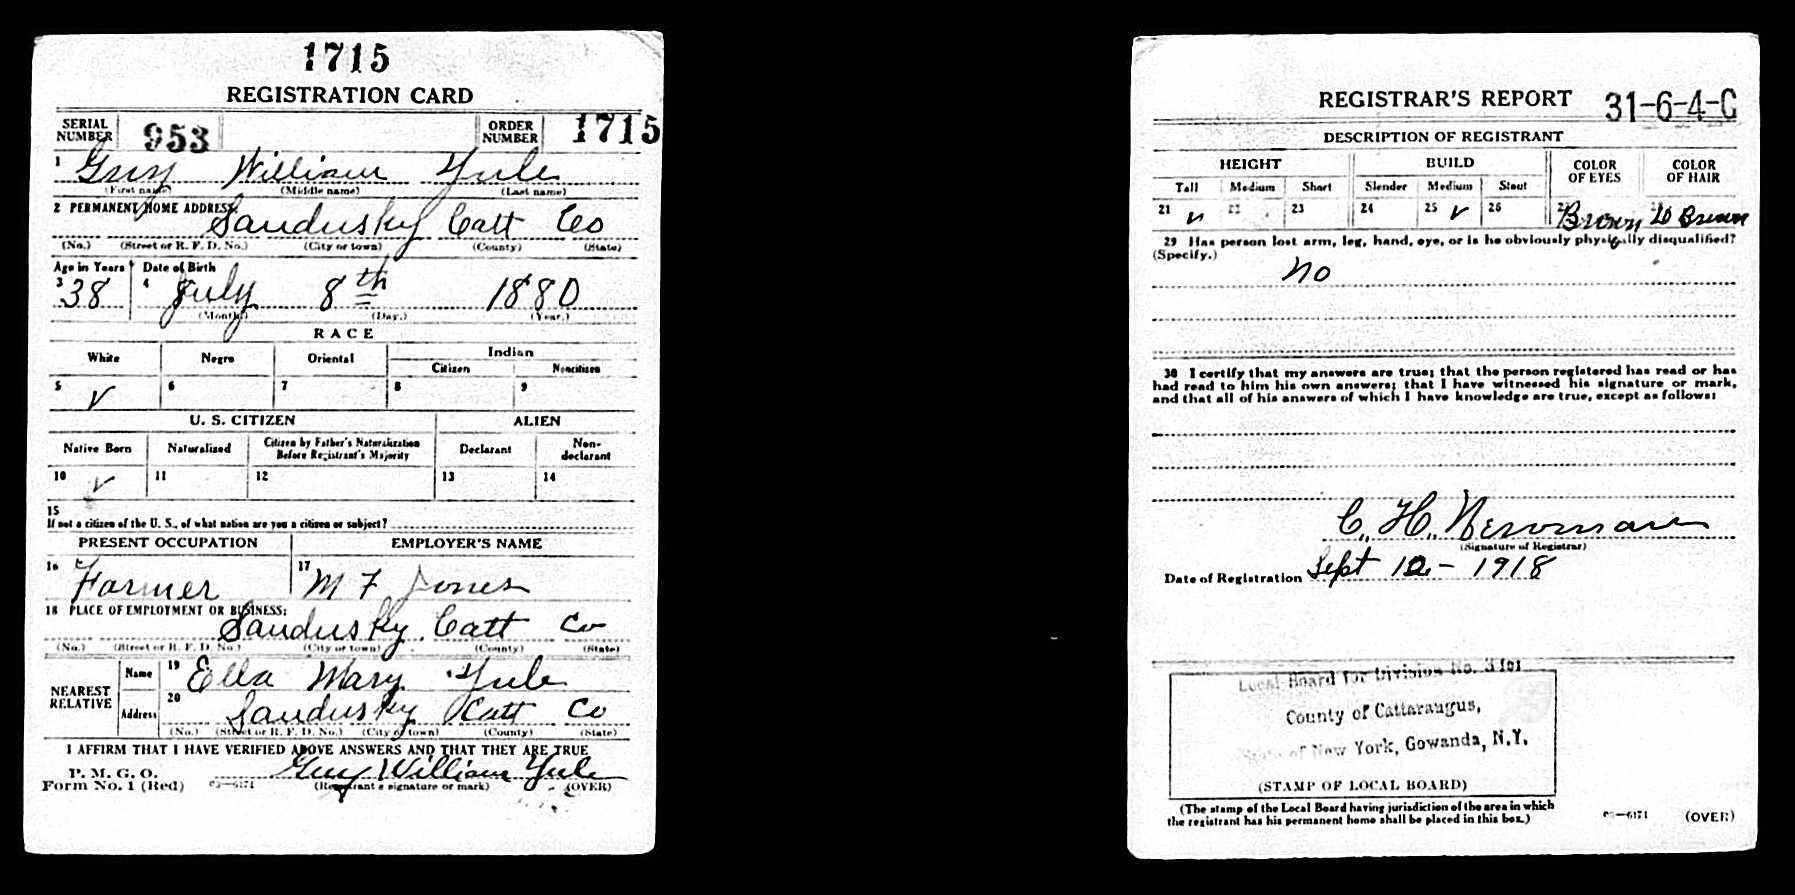 1715
REGISTRATION CARD
SERIAL NUMBER 953 ORDER NUMBER 1715
1 Guy William Yule
(First name) (Middle name) (Last name)
2 PERMANENT HOME ADDRESS: Sandusky Catt Co
(No.) (Street or R. F. D. No.) (City or town) (County) (State)
Age in Years Date of Birth
3 38 4 July 8th 1880
(Month) (Day.) (Year.)
RACE
White Negro Oriental Indian
Citizen Noncitizen
5 ✓ 6 7 8 9
U. S. CITIZEN ALIEN
Native Born Naturalized Citizen by Father's Naturalization Before Registrant's Majority Declarant Non-declarant
10 ✓ 11 12 13 14
15
If not a citizen of the U. S., of what nation are you a citizen or subject?
PRESENT OCCUPATION EMPLOYER'S NAME
16 Farmer 17 M F Jones
18 PLACE OF EMPLOYMENT OR BUSINESS:
Sandusky Catt Co
(No.) (Street or R. F. D. No.) (City or town) (County) (State)
NEAREST RELATIVE Name 19 Ella Mary Yule
Address 20 Sandusky Catt Co
(No.) (Street or R. F. D. No.) (City or town) (County) (State)
I AFFIRM THAT I HAVE VERIFIED ABOVE ANSWERS AND THAT THEY ARE TRUE
P. M. G. O.
Form No. 1 (Red) 03—6171 Guy William Yule
(Registrant's signature or mark) (OVER)
REGISTRAR'S REPORT 31-6-4-C
DESCRIPTION OF REGISTRANT
HEIGHT BUILD COLOR OF EYES COLOR OF HAIR
Tall Medium Short Slender Medium Stout
21 ✓ 22 23 24 25 ✓ 26 Brown D Brown
29 Has person lost arm, leg, hand, eye, or is he obviously physically disqualified?
(Specify.) no
30 I certify that my answers are true; that the person registered has read or has
had read to him his own answers; that I have witnessed his signature or mark,
and that all of his answers of which I have knowledge are true, except as follows:
C. H. Newman
(Signature of Registrar)
Date of Registration Sept 12 - 1918
Local Board for Division No. 3 for
County of Cattaraugus,
State of New York, Gowanda, N.Y.
(STAMP OF LOCAL BOARD)
(The stamp of the Local Board having jurisdiction of the area in which
the registrant has his permanent home shall be placed in this box.)
03—6171 (OVER)